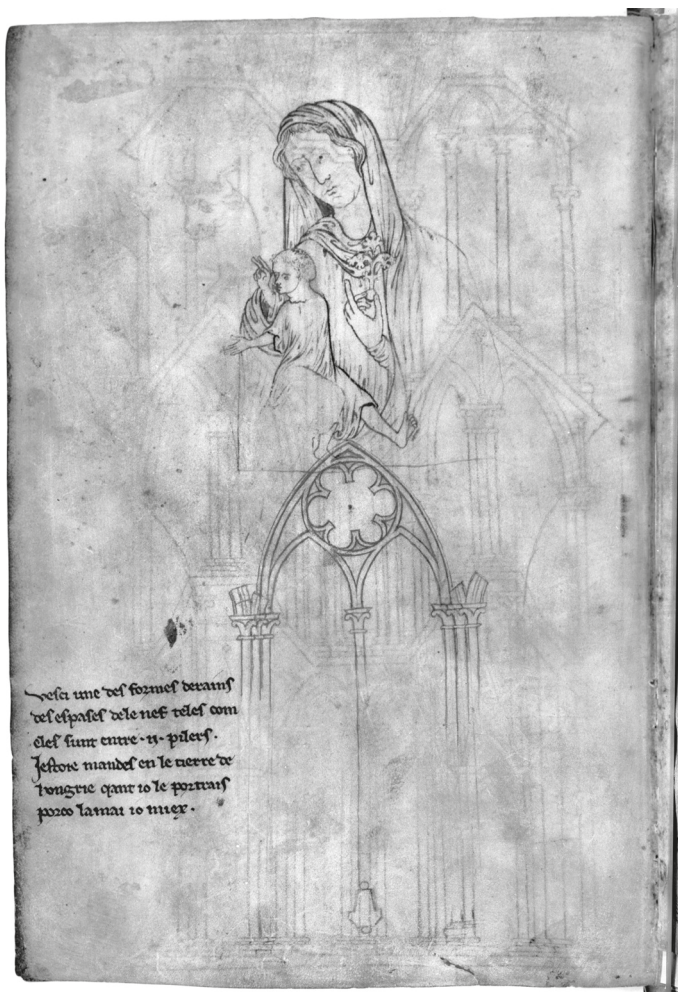 vesci une des formes derains
des espases dele nef teles com
eles sunt entre .ij. pilers.
Jestoie mandes en le tierre de
hongrie qant io le portrais
porco lamai io miex.